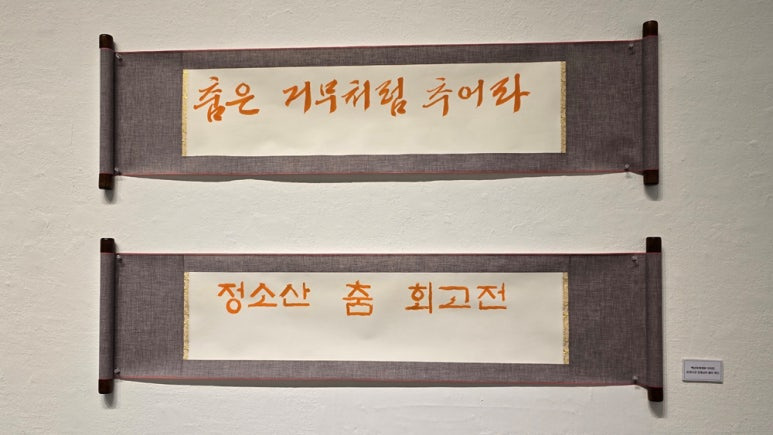 춤은 거무처럼 추어라
정소산 춤 회고전